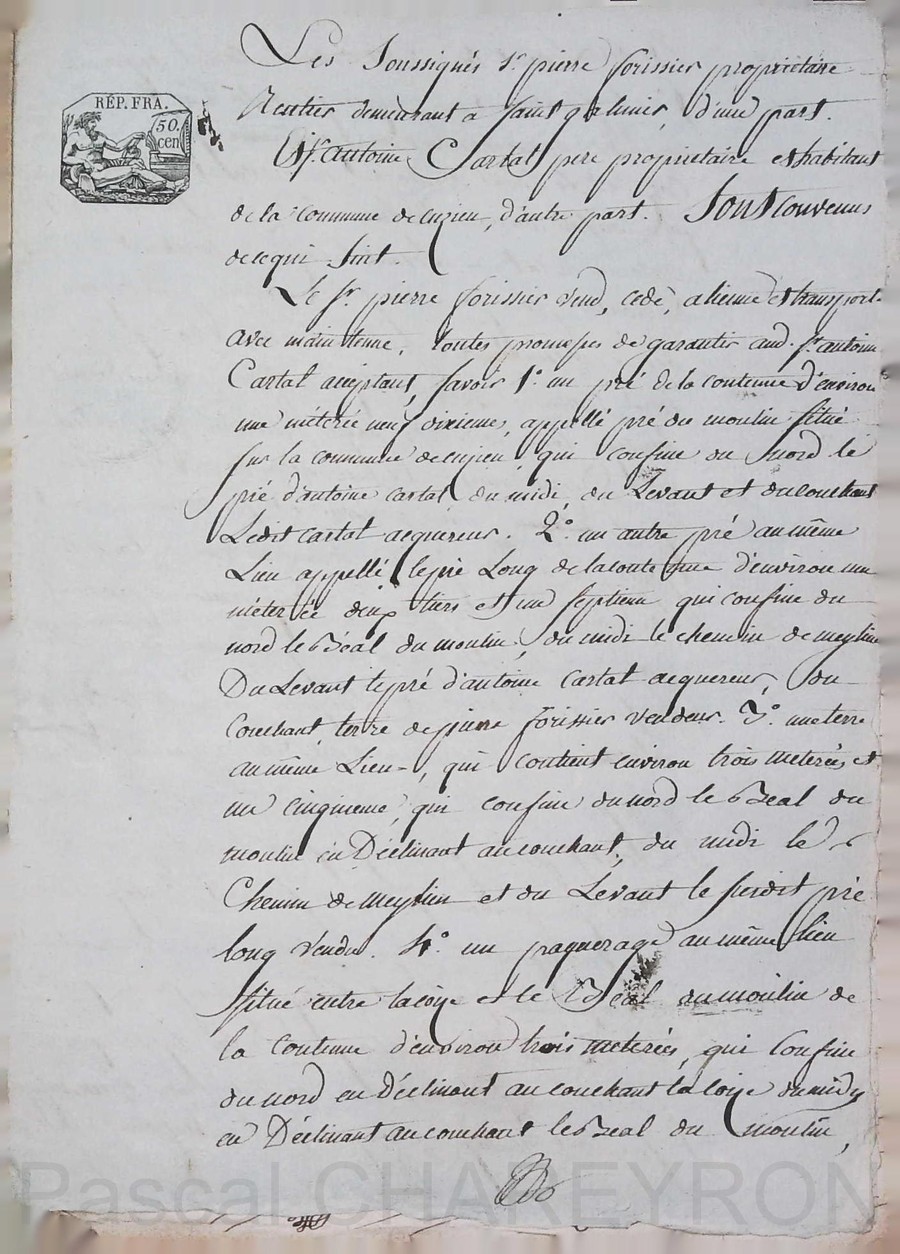 RÉP. FRA.
50.
cen
Les Soussignés Sr. pierre forissier proprietaire
Rentier demeurant a saint galmier, d'une part.
Et Sr. antoine Cartal pere proprietaire et habitant
de la commune de cuzieu, d'autre part. Sont Convenus
de ce qui Suit.
Le Sr. pierre forissier vend, cede, alienne et transporte
avec maintenue, toutes promesses de garantir aud. Sr. antoine
Cartal acceptant, savoir 1.° un pré de la contenue d'environ
une méterée neuf dixiemes, appellé pré du moulin situé
sur la commune de cuzieu, qui confine du Nord le
pré d'antoine cartal du midi, du Levant et du couchant
Ledit cartal acquereur. 2.° un autre pré au même
Lieu appellé le pré Long de la contenue d'environ une
méterée deux tiers et un septieme qui confine du
nord le Béal du moulin, du midi le chemin de meylieu
Du Levant le pré d'antoine Cartal acquereur, du
Couchant, terre de pierre forissier vendeur. 3.° une terre
au même Lieu, qui contient environ trois meterées et
un cinquieme, qui confine du nord le Béal du
moulin en Déclinant au couchant, du midi le
Chemin de Meylieu et du Levant le susdit pré
long vendu. 4.° un paquerage au même lieu
situé entre la coize et le Béal du moulin de
la Contenue d'environ trois meterées, qui Confine
du nord en Déclinant au couchant la coize du midy
en Déclinant au couchant le Béal du moulin,
Pascal CHAREYRON